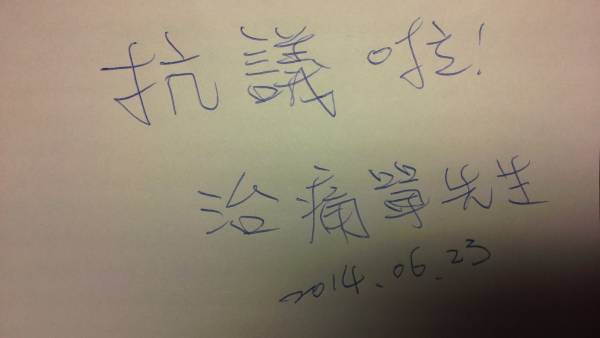 抗議啦!
治痛單先生
2014.06.23